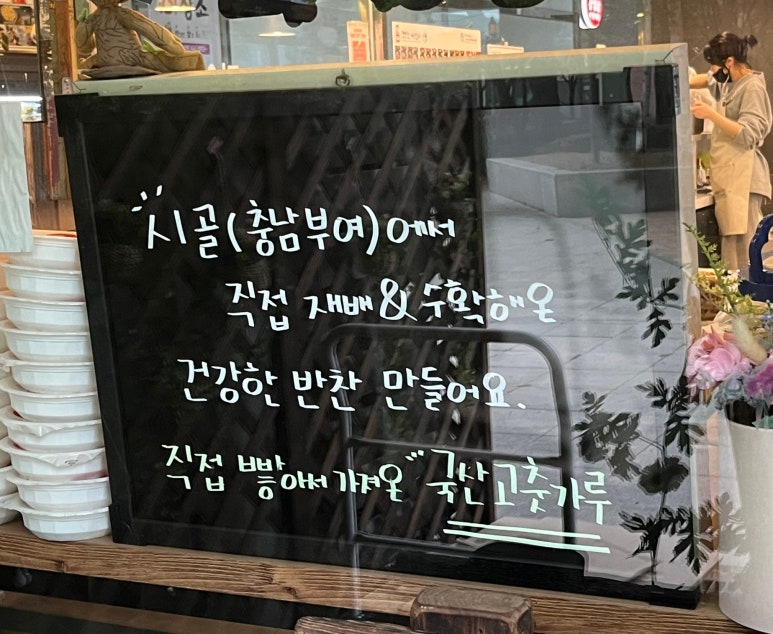 시골(충남부여)에서
직접 재배&수확해온
건강한 반찬 만들어요.
직접 빻아서 가져온 "국산고춧가루